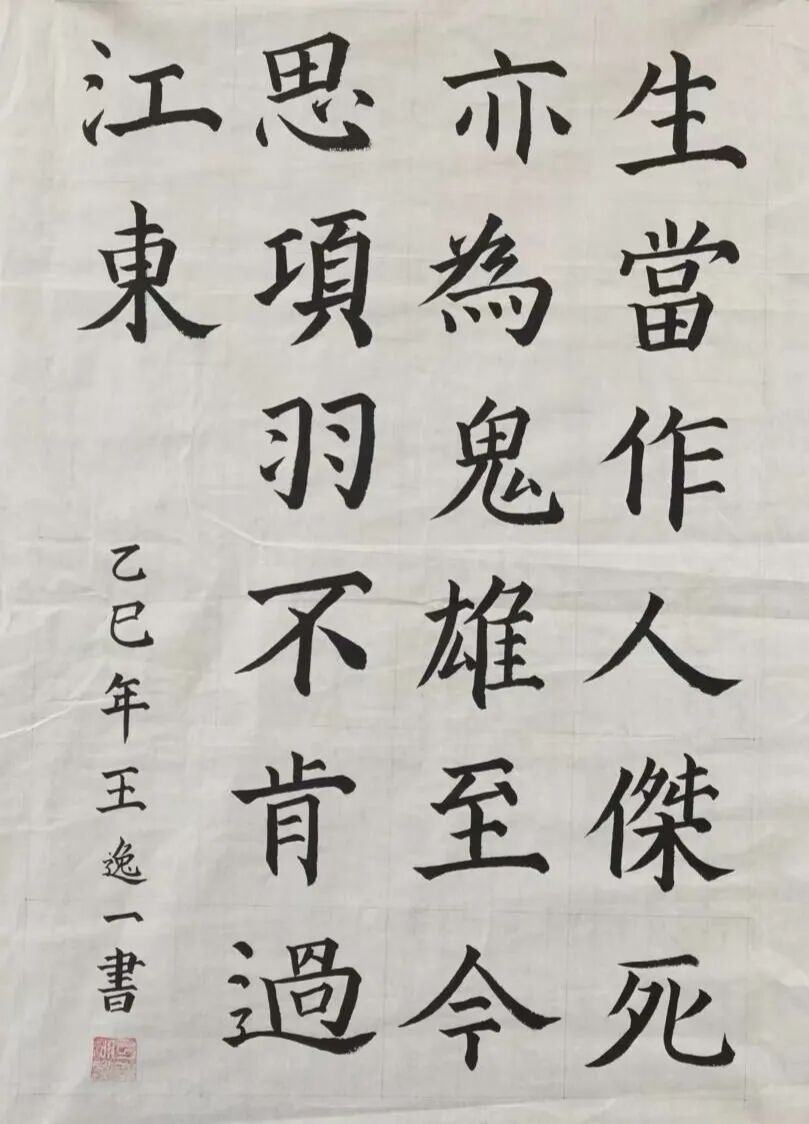 生當作人傑死
亦為鬼雄至今
思項羽不肯過
江東
乙巳年王逸一書